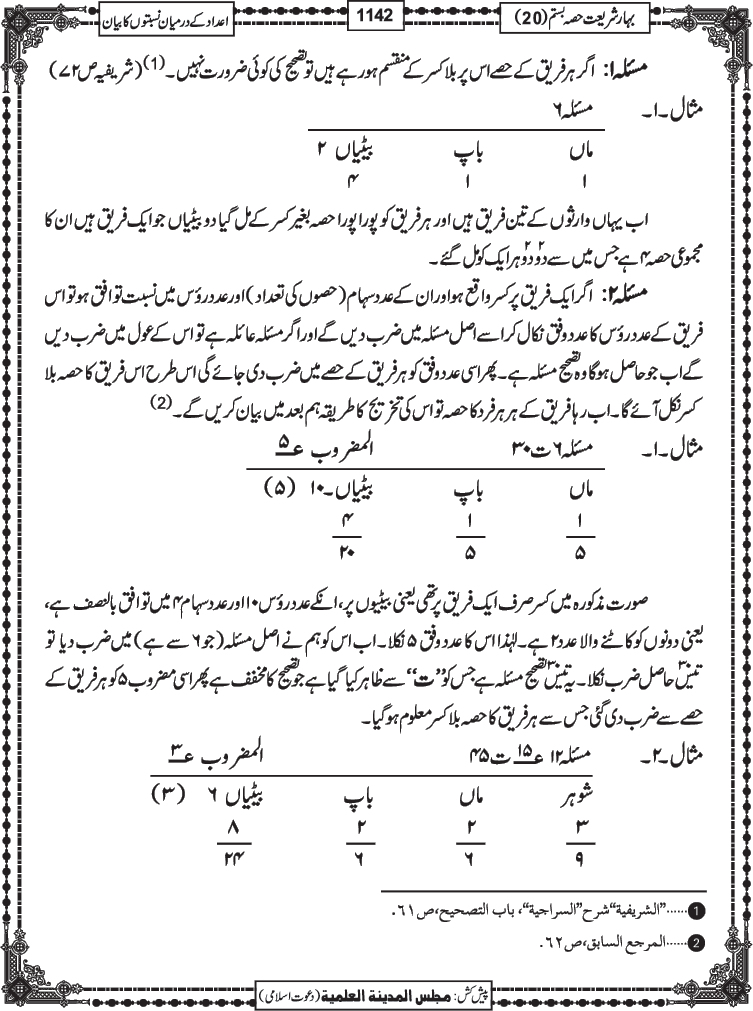 بہارِ شریعت حصہ بستم (20)
1142
اعداد کے درمیان نسبتوں کا بیان
مسئلہ۱: اگر ہر فریق کے حصے اس پر بلا کسر کے منقسم ہورہے ہیں تو تصحیح کی کوئی ضرورت نہیں۔(1) (شریفیہ ص۷۲)
مثال۔۱۔ مسئلہ ۶
ماں باپ بیٹیاں ۲
۱ ۱ ۴
اب یہاں وارثوں کے تین فریق ہیں اور ہر فریق کو پورا پورا حصہ بغیر کسر کے مل گیا دو بیٹیاں جو ایک فریق ہیں ان کا
مجموعی حصہ ۴ ہے جس میں سے دو۲ دو۲ ہر ایک کو مل گئے۔
مسئلہ۲: اگر ایک فریق پر کسر واقع ہو اور ان کے عدد سہام (حصوں کی تعداد) اور عدد رؤس میں نسبت توافق ہو تو اس
فریق کے عدد رؤس کا عدد وفق نکال کر اسے اصل مسئلہ میں ضرب دیں گے اور اگر مسئلہ عائلہ ہے تو اس کے عول میں ضرب دیں
گے اب جو حاصل ہوگا وہ تصحیح مسئلہ ہے۔ پھر اسی عدد وفق کو ہر فریق کے حصے میں ضرب دی جائے گی اس طرح اس فریق کا حصہ بلا
کسر نکل آئے گا۔ اب رہا فریق کے ہر ہر فرد کا حصہ تو اس کی تخریج کا طریقہ ہم بعد میں بیان کریں گے۔(2)
مثال۔۱۔ مسئلہ ۶ ت ۳۰ المضروب عـ۵
ماں باپ بیٹیاں۔۱۰ (۵)
۱ ۱ ۴
۵ ۵ ۲۰
صورت مذکورہ میں کسر صرف ایک فریق پر تھی یعنی بیٹیوں پر، انکے عدد رؤس ۱۰ اور عدد سہام ۴ میں توافق بالنصف ہے،
یعنی دونوں کو کاٹنے والا عدد ۲ ہے۔ لہٰذا اس کا عدد وفق ۵ نکلا۔ اب اس کو ہم نے اصل مسئلہ (جو ۶ سے ہے) میں ضرب دیا تو
تیس۳۰ حاصل ضرب نکلا۔ یہ تیس۳۰ تصحیح مسئلہ ہے جس کو ”ت“ سے ظاہر کیا گیا ہے جو تصحیح کا مخفف ہے پھر اسی مضروب ۵ کو ہر فریق کے
حصے سے ضرب دی گئی جس سے ہر فریق کا حصہ بلا کسر معلوم ہوگیا۔
مثال۔۲۔ مسئلہ ۱۲ عـ۱۵ ت ۴۵ المضروب عـ۳
شوہر ماں باپ بیٹیاں ۶ (۳)
۳ ۲ ۲ ۸
۹ ۶ ۶ ۲۴
1 ......”الشریفیة“ شرح ”السراجیة“، باب التصحیح، ص۶۱.
2 ......المرجع السابق، ص۶۲.
پیش کش: مجلس المدینة العلمیة (دعوت اسلامی)